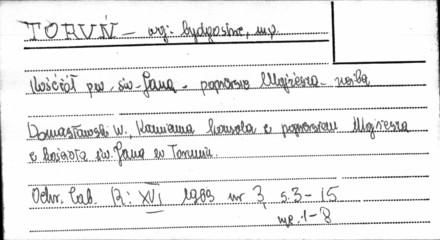 TORUŃ - woj: bydgoskie, mp
Kościół pw. św. Jana - popiersie Mojżesza - rzeźba
Domasłowski W. Kamienna konsola z popiersiem Mojżesza
z kościoła św. Jana w Toruniu
Ochr. Zab. R: XVI 1963 nr 3, s. 3-15
ryc. 1-8